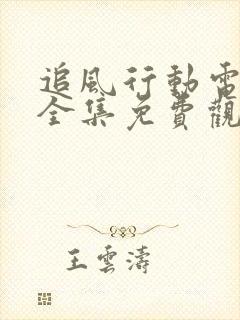 追風行動電
全集免費觀
王雲濤